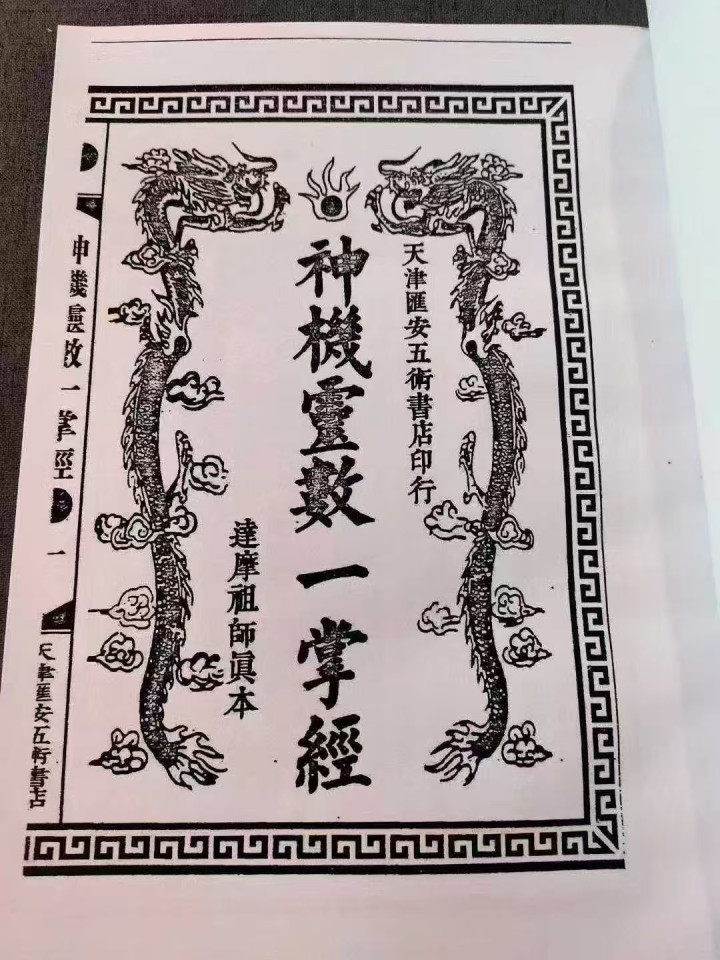 天津匯安五術書店印行
神機靈數一掌經
達摩祖師眞本
神機靈數一掌經
一
天津匯安五術書店